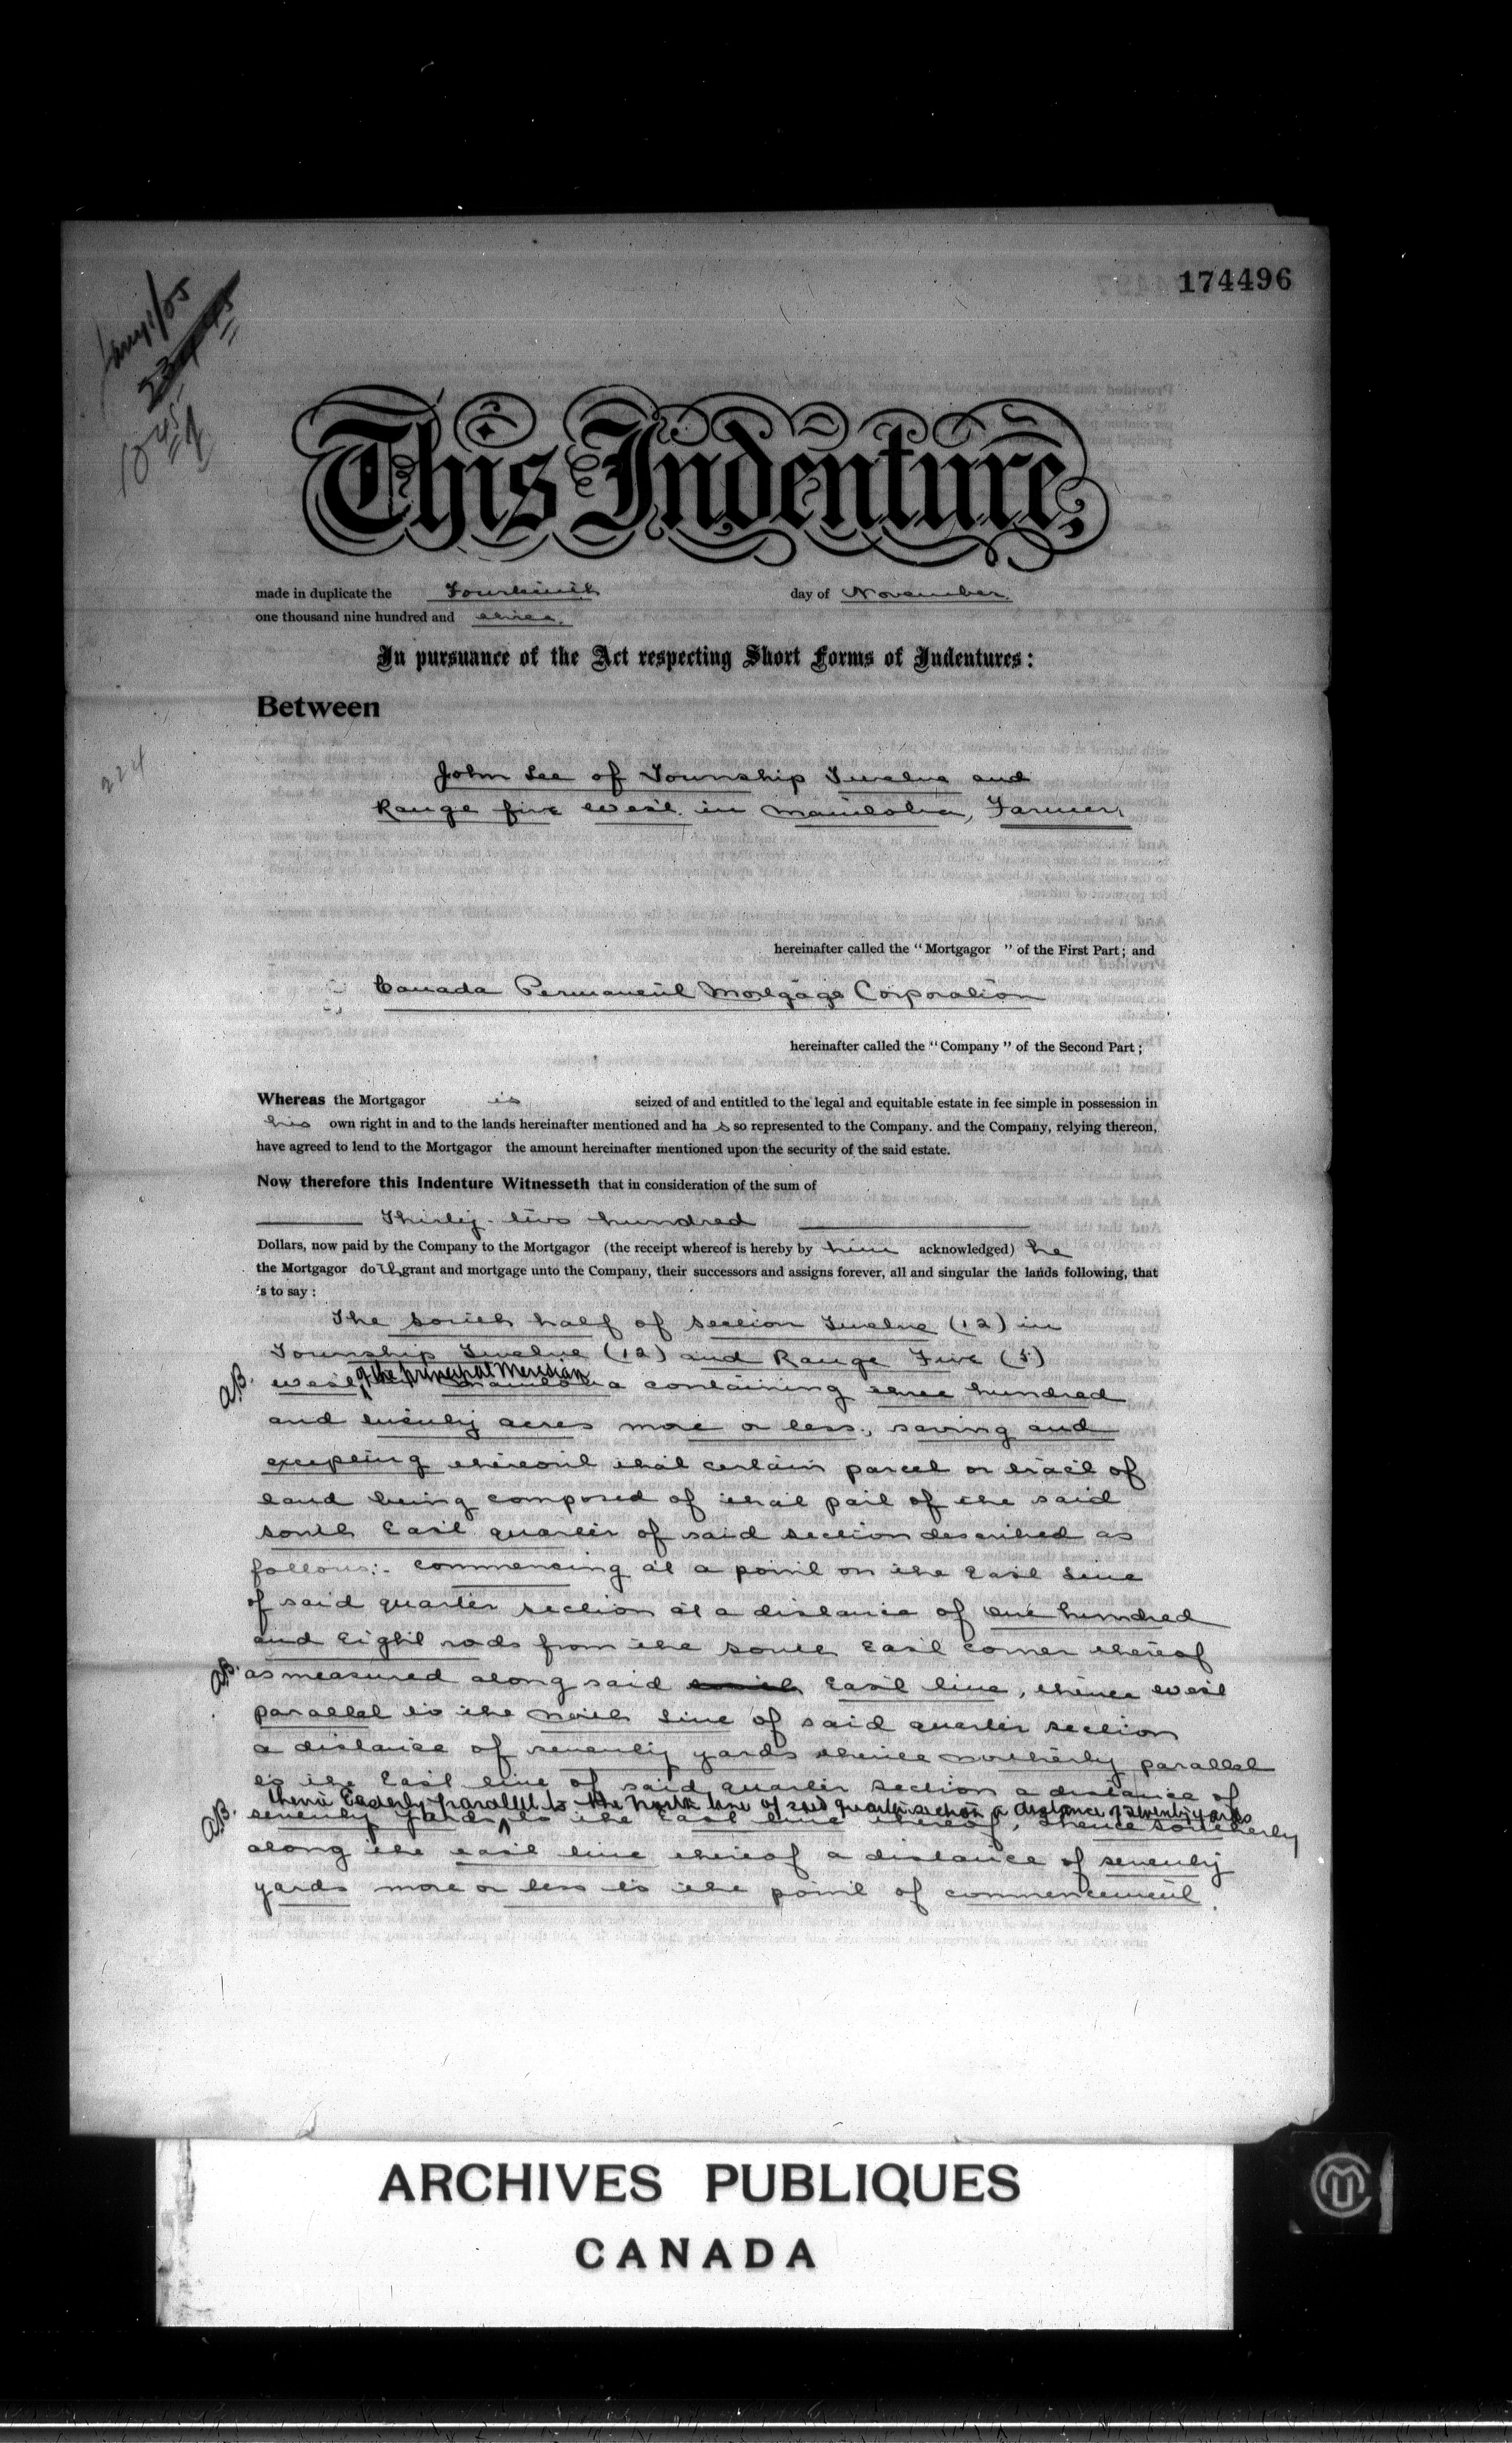 174496
Jany 1/05
1045
This Indenture,
made in duplicate the Fourteenth day of November
one thousand nine hundred and three.
In pursuance of the Act respecting Short Forms of Indentures:
Between
John Lee of Township Twelve and
Range five west in Manitoba, Farmer,
hereinafter called the "Mortgagor " of the First Part; and
Canada Permanent Mortgage Corporation
hereinafter called the "Company" of the Second Part;
Whereas the Mortgagor is seized of and entitled to the legal and equitable estate in fee simple in possession in
his own right in and to the lands hereinafter mentioned and ha s so represented to the Company. and the Company, relying thereon,
have agreed to lend to the Mortgagor the amount hereinafter mentioned upon the security of the said estate.
Now therefore this Indenture Witnesseth that in consideration of the sum of
Thirty-two hundred
Dollars, now paid by the Company to the Mortgagor (the receipt whereof is hereby by him acknowledged) he
the Mortgagor doth grant and mortgage unto the Company, their successors and assigns forever, all and singular the lands following, that
is to say:
The South half of Section Twelve (12) in
Township Twelve (12) and Range Five (5)
of the principal Meridian
A.B. West in Manitoba containing three hundred
and twenty acres more or less, saving and
excepting thereout that certain parcel or tract of
land being composed of that part of the said
South East quarter of said section described as
follows:- Commencing at a point on the East line
of said quarter section at a distance of one hundred
and Eight rods from the South East corner thereof
A.B. as measured along said south East line, thence west
parallel to the North line of said quarter section
a distance of seventy yards thence northerly parallel
to the East line of said quarter section a distance of
thence Easterly parallel to the North line of said quarter section a distance of seventy yards
A.B. seventy yards to the East line thereof, thence southerly
along the east line thereof a distance of seventy
yards more or less to the point of commencement.
224
ARCHIVES PUBLIQUES
CANADA